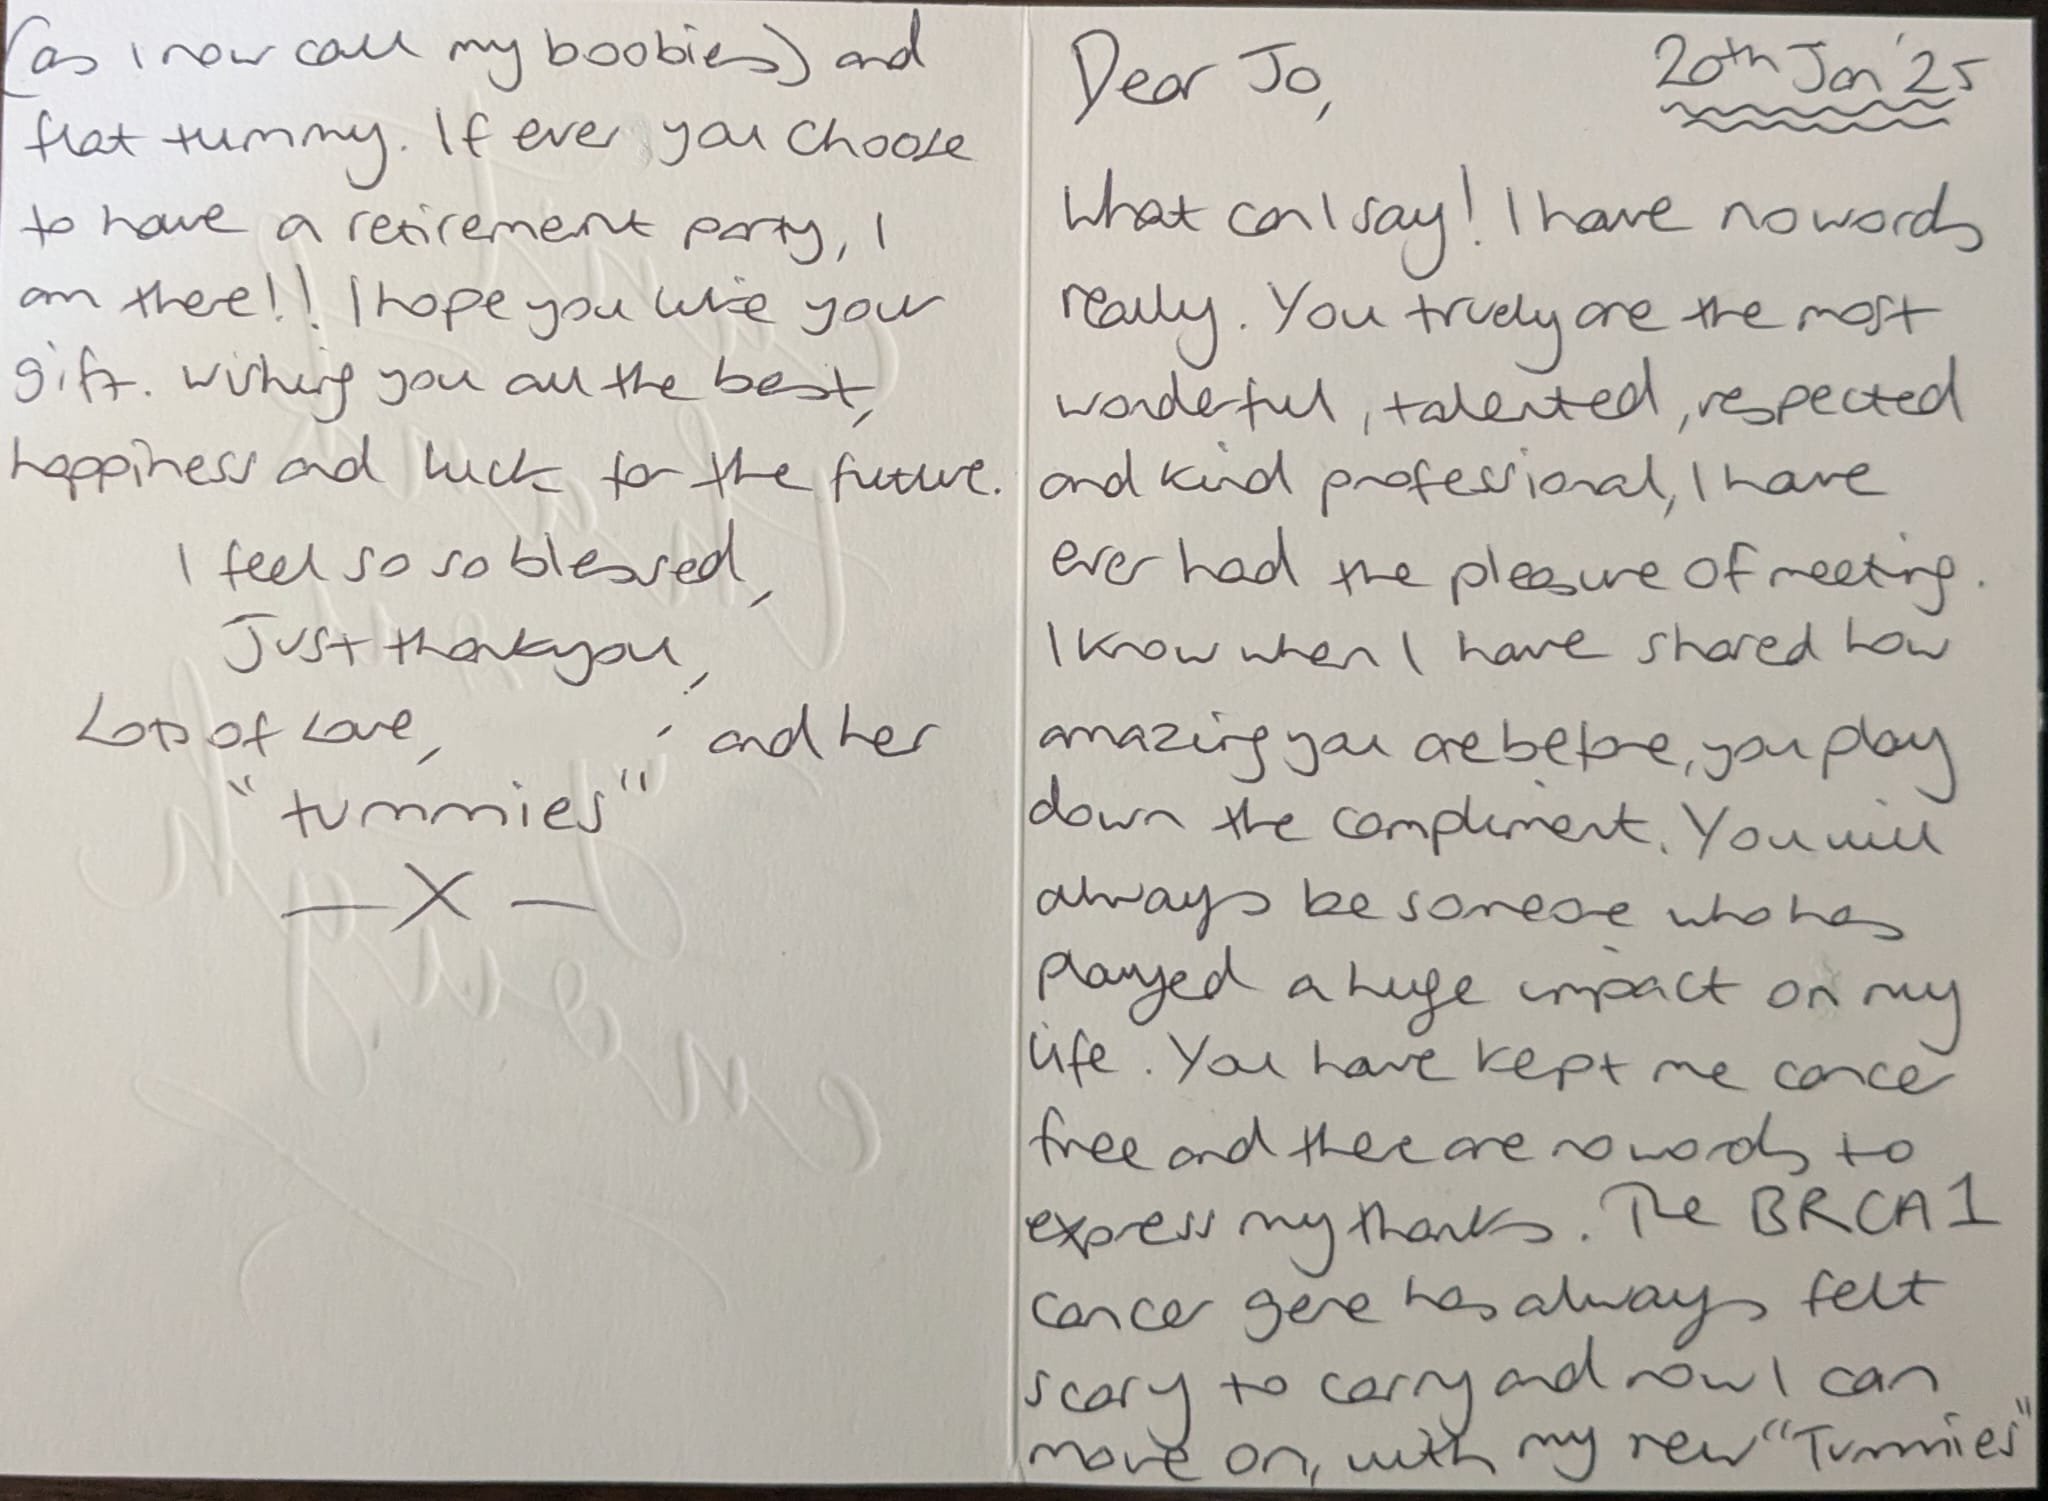 Dear Jo,
20th Jan '25
What can I say! I have no words
really. You truely are the most
wonderful, talented, respected
and kind professional, I have
ever had the pleasure of meeting.
I know when I have shared how
amazing you are before, you play
down the compliment. You will
always be someone who has
played a huge impact on my
life. You have kept me cancer
free and there are no words to
express my thanks. The BRCA1
cancer gene has always felt
scary to carry and now I can
move on, with my new "Tummies"
(as I now call my boobies) and
flat tummy. If ever you choose
to have a retirement party, I
am there!! I hope you like your
gift. Wishing you all the best,
happiness and luck for the future.
I feel so so blessed,
Just thankyou,
Lots of Love, and her
"tummies"
—X—